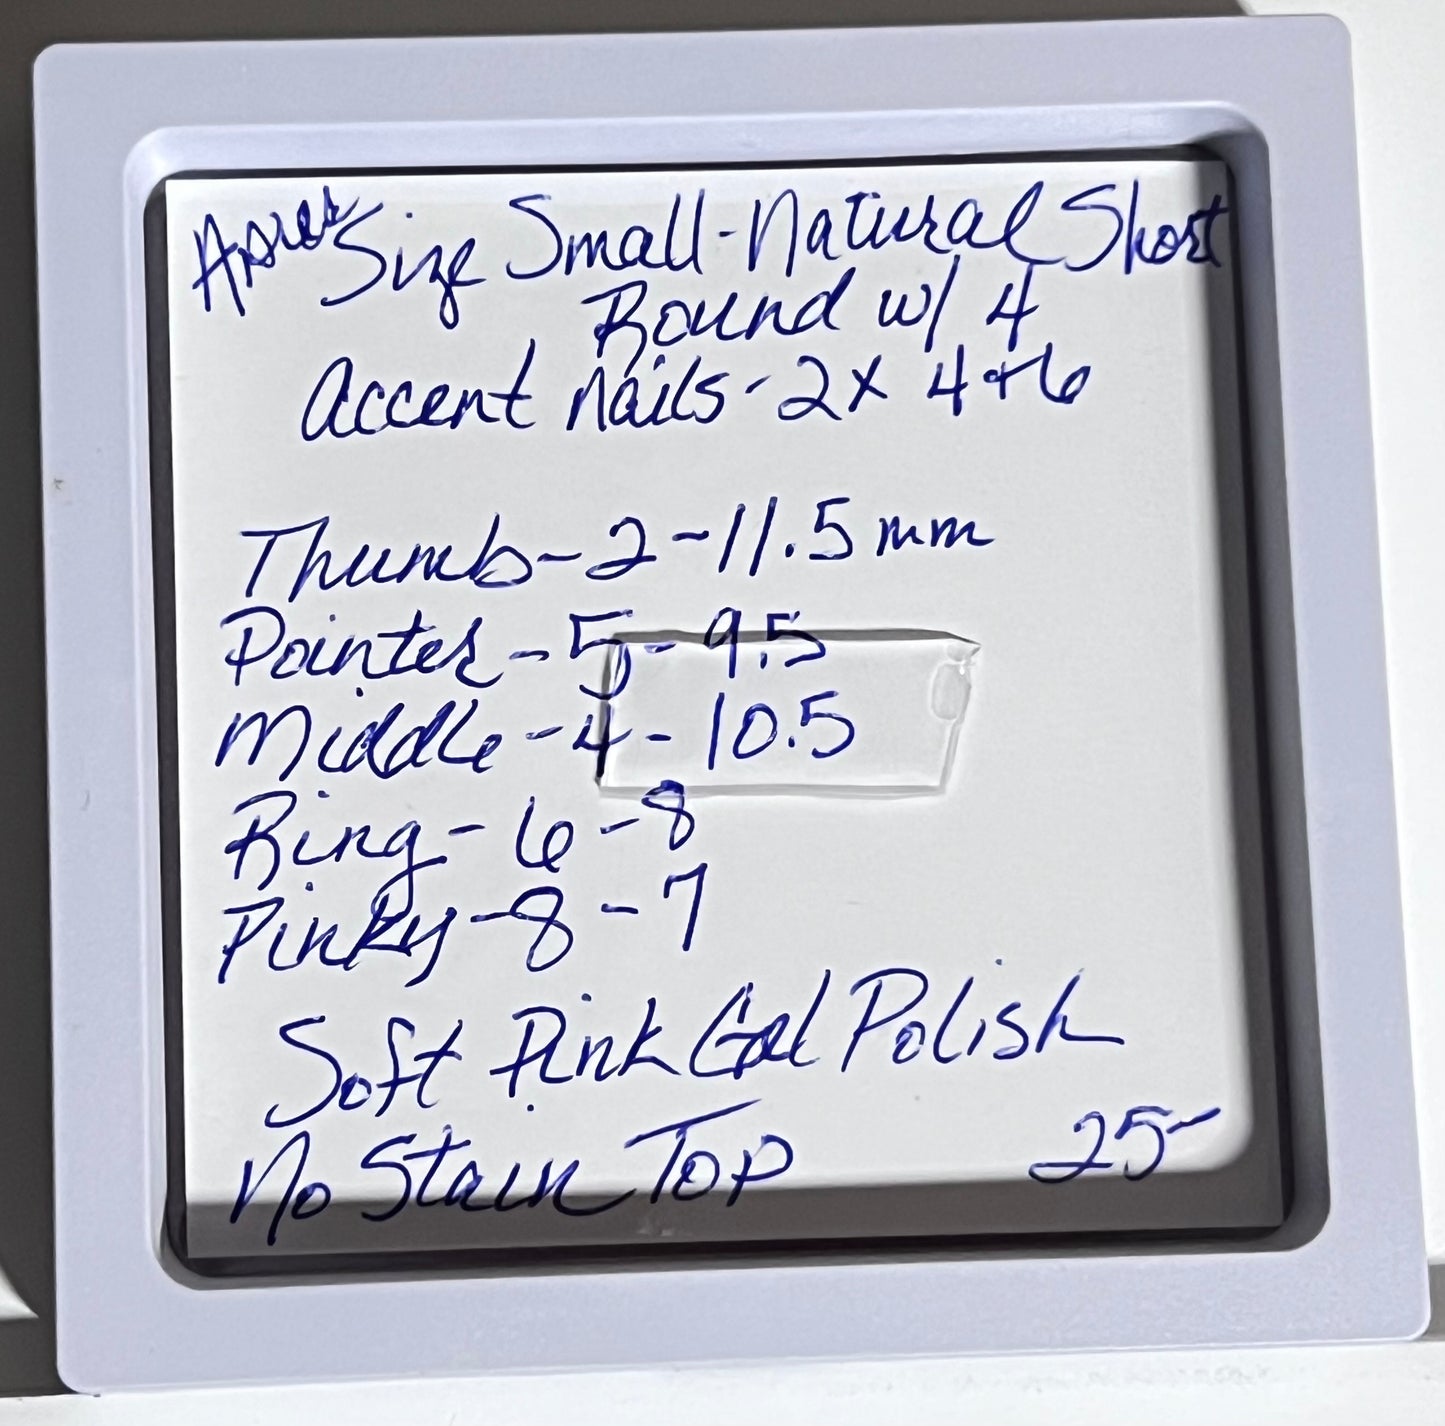 Size Small-Natural Short
Round w/ 4
Accent Nails-2x 4+6
Thumb-2-11.5mm
Pointer-5-9.5
Middle-4-10.5
Ring-6-8
Pinky-8-7
Soft Pink Gel Polish
No Stain Top 25-